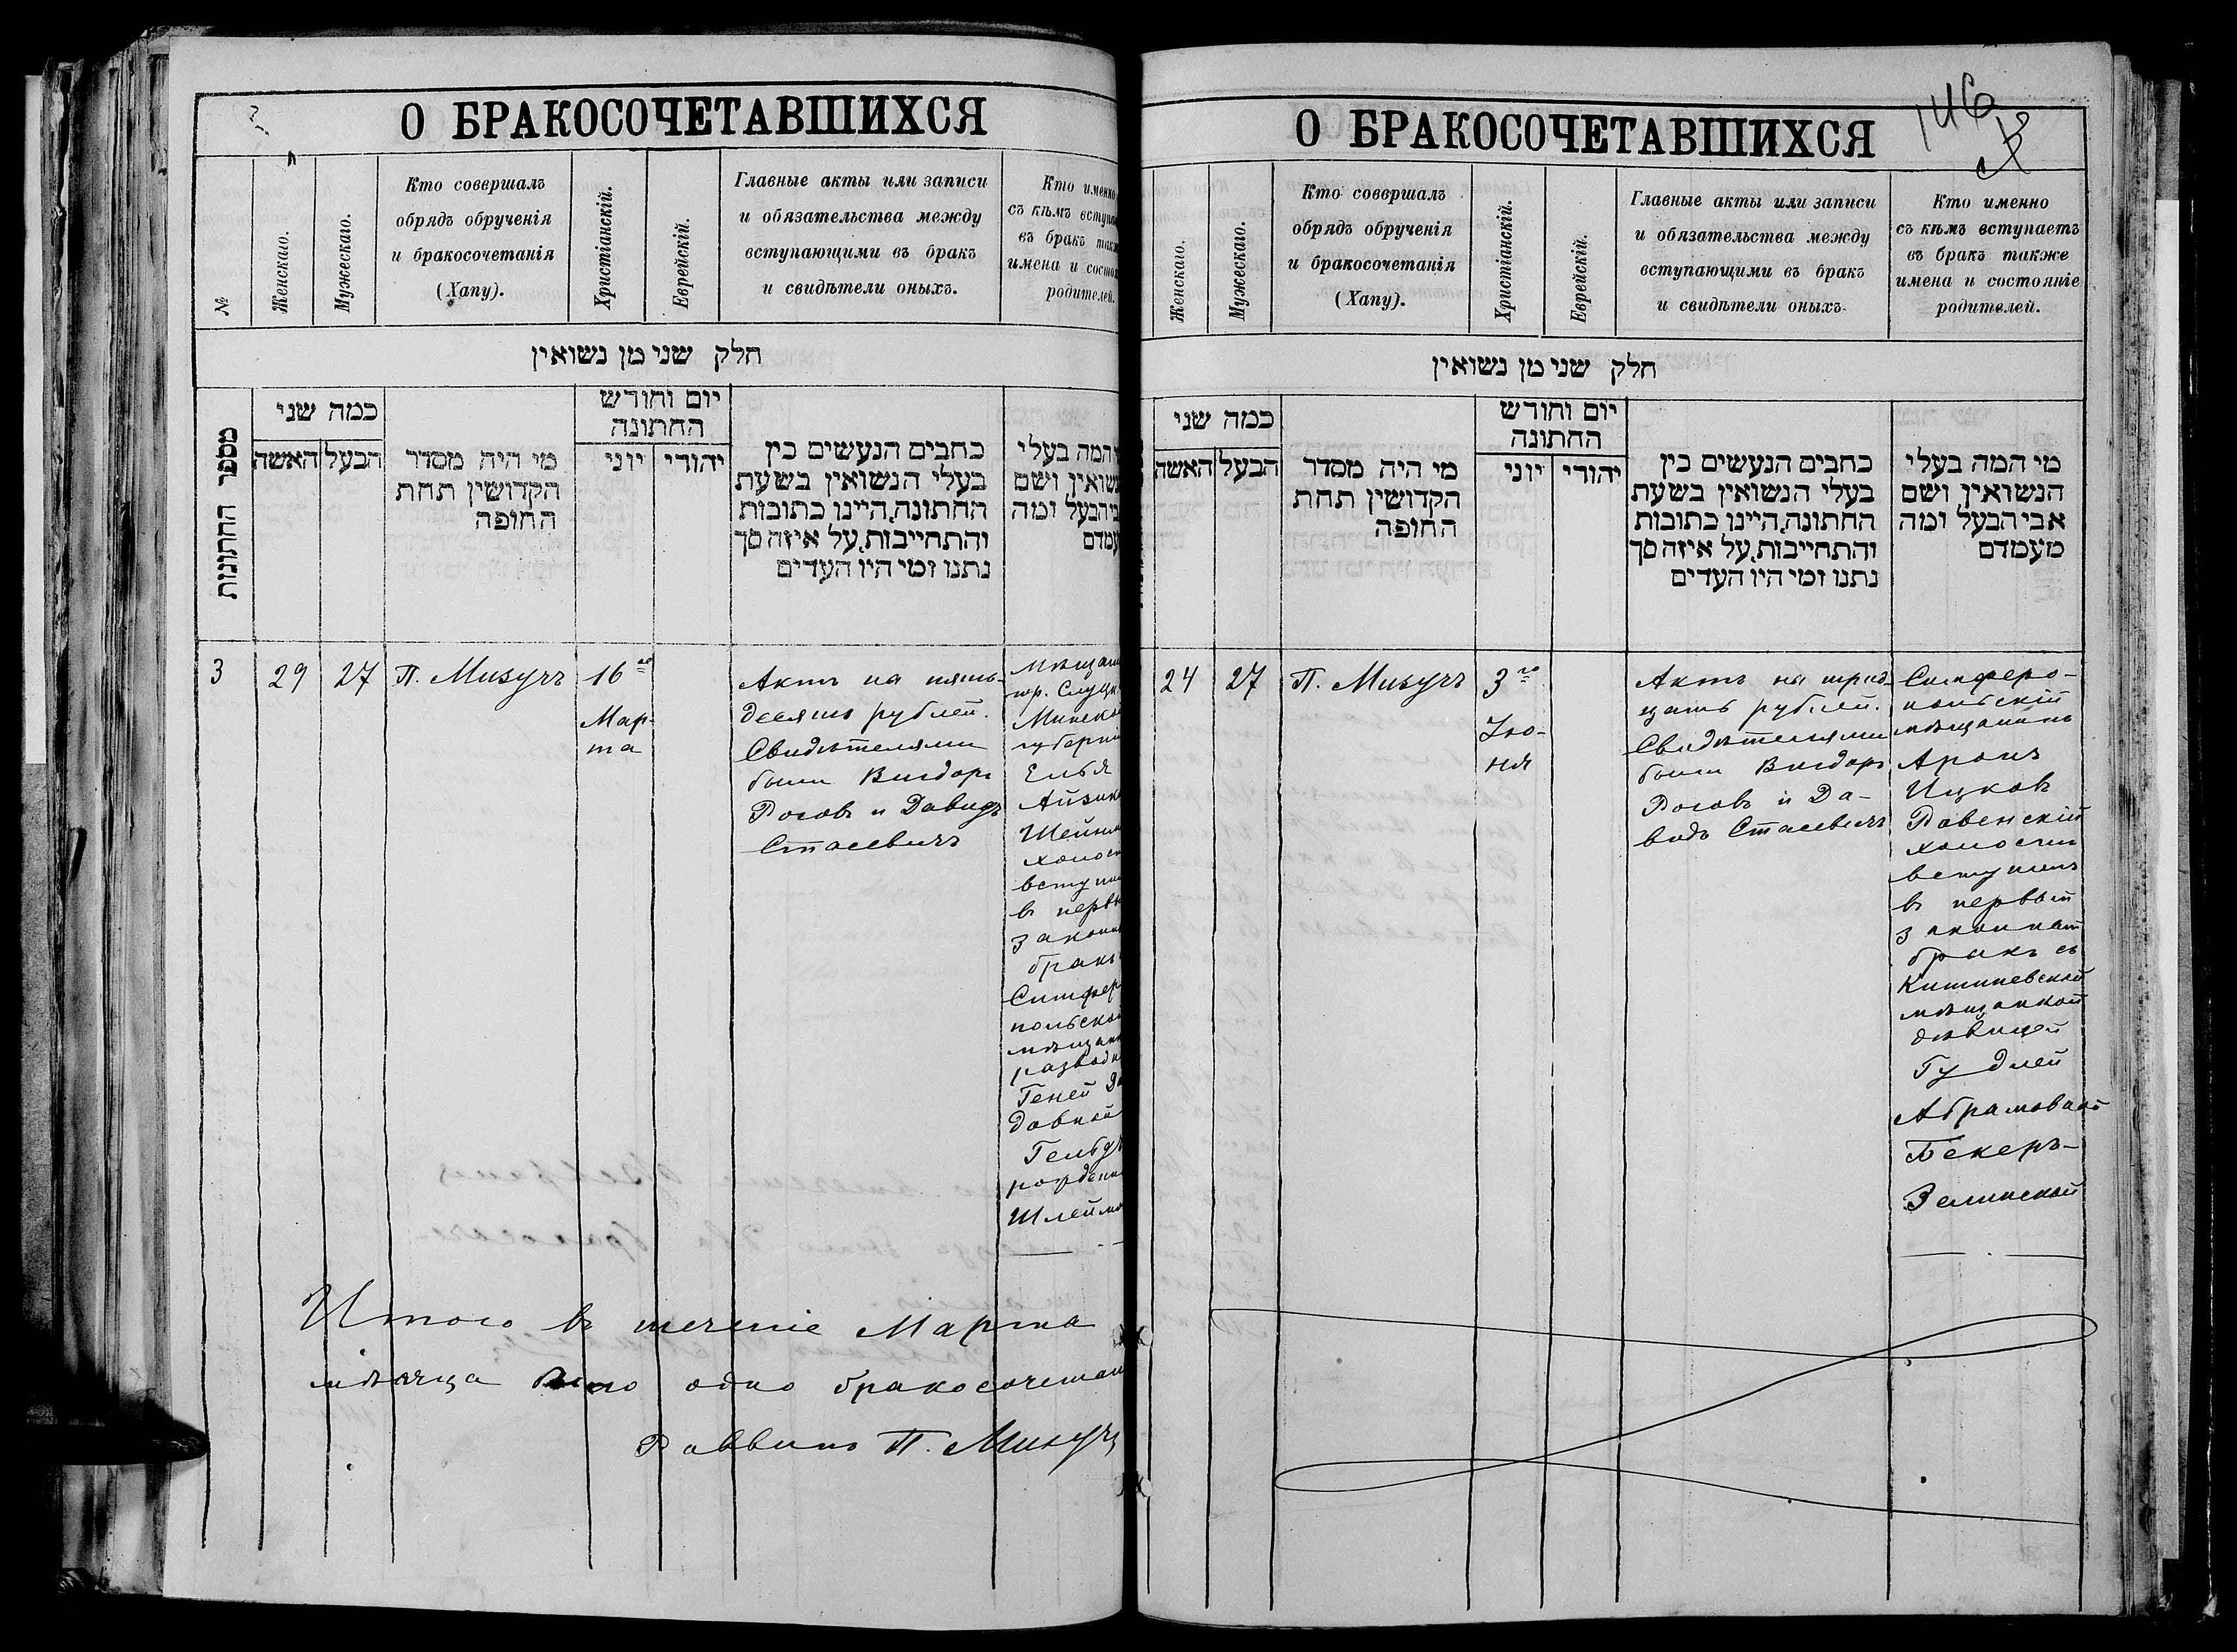 О БРАКОСОЧЕТАВШИХСЯ
№
Женскаго.
Мужескаго.
Кто совершалъ
обрядъ обрученія
и бракосочетанія
(Хапу).
Христіанскій.
Еврейскій.
Главные акты или записи
и обязательства между
вступающими въ бракъ
и свидѣтели оныхъ.
Кто именно
съ кѣмъ вступа
въ бракъ так
имена и состоя
родителей.
חלק שני מן נשואין
מספר החתונות
כמה שני
האשה
הבעל
מי היה מסדר
הקדושין תחת
החופה
יום וחודש
החתונה
יוני
יהודי
כתבים הנעשים בין
בעלי הנשואין בשעת
החתונה,היינו כתובות
והתחייבות,על איזה סך
נתנו ומי היו העדים
המה בעלי
נשואין ושם
בי הבעל ומה
עמדם
3
29
27
П. Мизучъ
16го
Мар-
та
Актъ на пять-
десятъ рублей.
Свидѣтелями
были Вигдоръ
Роговъ и Давидъ
Стасевичъ
мѣщан
гор. Слуцк
Минско
губерні
Елья
Айзик
Шейн
холос
вступи
въ перв
законн
бракъ
Симфер
польско
мѣщан
развод
Геней Да
довной
Гельд
рожден
Шлейм
Итого въ теченіе Марта
мѣсяца было одно бракосочетан
Раввинъ П. Мизучъ
146
О БРАКОСОЧЕТАВШИХСЯ
Женскаго.
Мужескаго.
Кто совершалъ
обрядъ обрученія
и бракосочетанія
(Хапу).
Христіанскій.
Еврейскій.
Главные акты или записи
и обязательства между
вступающими въ бракъ
и свидѣтели оныхъ.
Кто именно
съ кѣмъ вступаетъ
въ бракъ также
имена и состояніе
родителей.
חלק שני מן נשואין
כמה שני
האשה
הבעל
מי היה מסדר
הקדושין תחת
החופה
יום וחודש
החתונה
יוני
יהודי
כתבים הנעשים בין
בעלי הנשואין בשעת
החתונה,היינו כתובות
והתחייבות,על איזה סך
נתנו ומי היו העדים
מי המה בעלי
הנשואין ושם
אבי הבעל ומה
מעמדם
24
27
П. Мизучъ
3го
Iю-
ня
Актъ на трид-
цать рублей.
Свидѣтелями
были Вигдоръ
Роговъ и Да-
видъ Стасевичъ
Симферо-
польскій
мѣщанинъ
Аронъ
Ицковъ
Равенскій
холостъ
вступилъ
въ первый
законный
бракъ съ
Кишиневской
мѣщанкой
дѣвицей
Гудлей
Абрамовной
Бекеръ-
Зелинской